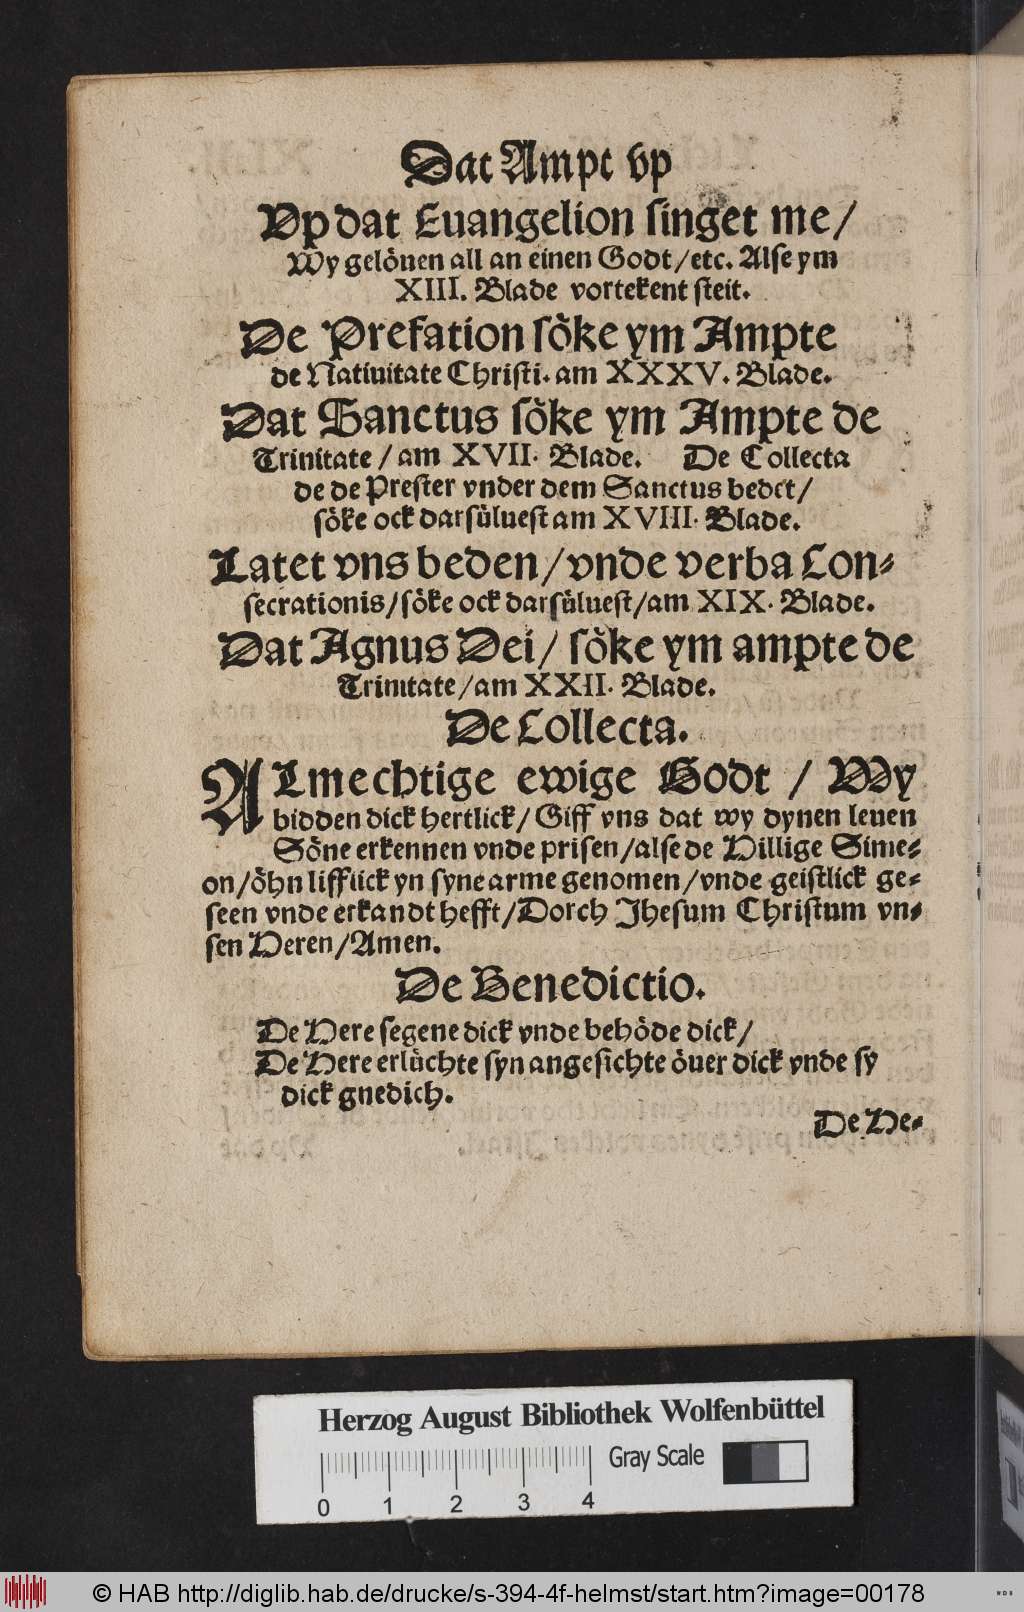 Dat Ampt vp
Vp dat Euangelion singet me/
Wy gelöuen all an einen Godt/etc. Alse ym
XIII. Blade vortekent steit.
De Prefation söke ym Ampte
de Natiuitate Christi. am XXXV. Blade.
Dat Sanctus söke ym Ampte de
Trinitate/am XVII. Blade. De Collecta
de de Prester vnder dem Sanctus bedet/
söke ock darsüluest am XVIII. Blade.
Latet vns beden/vnde verba Con-
secrationis/söke ock darsüluest/am XIX. Blade.
Dat Agnus Dei/söke ym ampte de
Trinitate/am XXII. Blade.
De Collecta.
ALmechtige ewige Godt/Wy
bidden dick hertlick/Giff vns dat wy dynen leuen
Söne erkennen vnde prisen/alse de Hillige Sime-
on/öhn lifflick yn syne arme genomen/vnde geistlick ge-
seen vnde erkandt hefft/Dorch Jhesum Christum vn-
sen Heren/Amen.
De Benedictio.
De Here segene dick vnde behöde dick/
De Here erlüchte syn angesichte öuer dick vnde sy
dick gnedich.
De He-
Herzog August Bibliothek Wolfenbüttel
Gray Scale
0 1 2 3 4
© HAB http://diglib.hab.de/drucke/s-394-4f-helmst/start.htm?image=00178